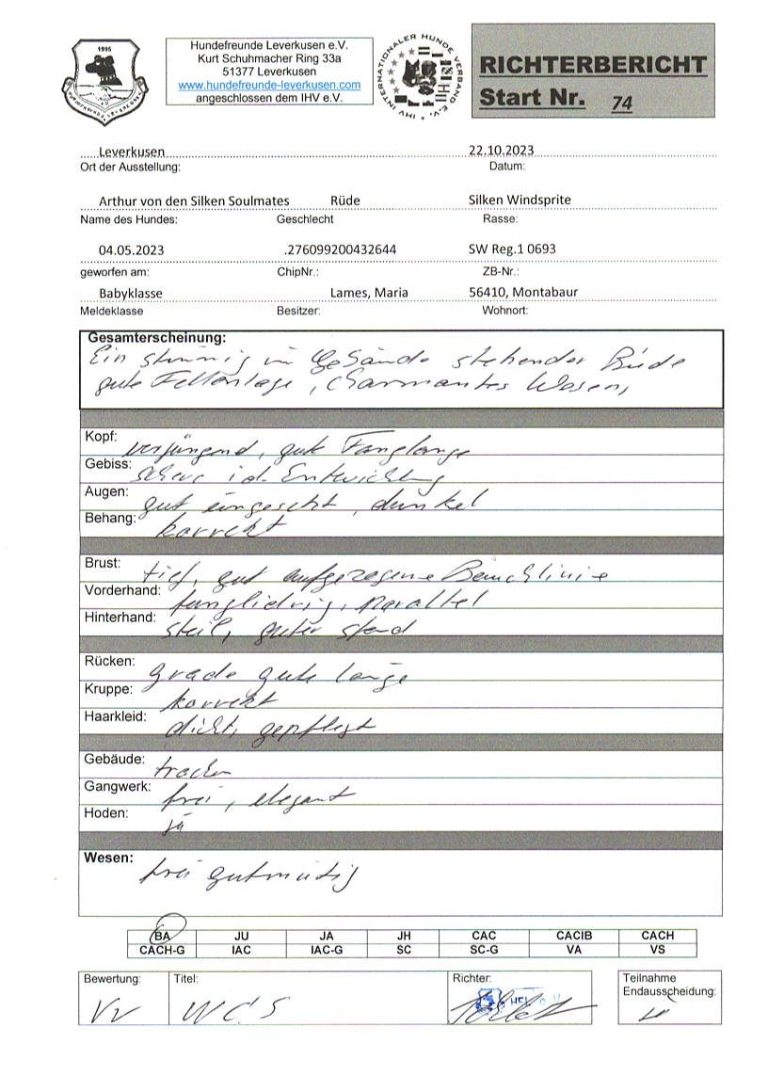 1995
Hundefreunde Leverkusen e.V.
Kurt Schuhmacher Ring 33a
51377 Leverkusen
www.hundefreunde-leverkusen.com
angeschlossen dem IHV e.V.
IHV INTERNATIONALER HUNDE VERBAND E.V.
RICHTERBERICHT
Start Nr. 74
Leverkusen 22.10.2023
Ort der Ausstellung: Datum:
Arthur von den Silken Soulmates Rüde Silken Windsprite
Name des Hundes: Geschlecht Rasse:
04.05.2023 .276099200432644 SW Reg.1 0693
geworfen am: ChipNr.: ZB-Nr.:
Babyklasse Lames, Maria 56410, Montabaur
Meldeklasse Besitzer: Wohnort:
Gesamterscheinung:
Ein stimmig im Gebäude stehender Rüde
gute Fellanlage, charmantes Wesen,
Kopf: verjüngend, gute Fanglänge
Gebiss: Schere i.d. Entwicklung
Augen: gut eingesetzt, dunkel
Behang: korrekt
Brust: tief, gut aufgezogene Bauchlinie
Vorderhand: langliedrig, parallel
Hinterhand: steil, guter stand
Rücken: grade gute länge
Kruppe: korrekt
Haarkleid: dicht, gepflegt
Gebäude: trocken
Gangwerk: frei, elegant
Hoden: ja
Wesen: frei gutmütig
BA JU JA JH CAC CACIB CACH
CACH-G IAC IAC-G SC SC-G VA VS
Bewertung: Titel: Richter: Teilnahme
Endausscheidung:
VV WCS ja